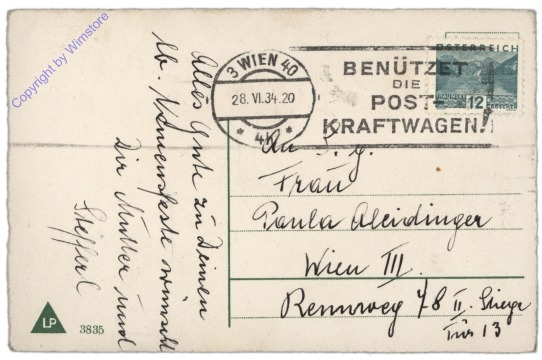 Copyright by Wimstore
Alles Gute zu Deinem
lb. Namensfeste wünscht
Dir Mutter und
Stefferl
3 WIEN 40
28. VI. 34. 20
* 4K *
BENÜTZET
DIE
POST-
KRAFTWAGEN!
ÖSTERREICH
12
An
Frau
Paula
Wien III.
Rennweg 78 II. Stiege
Tür 13
LP
3835